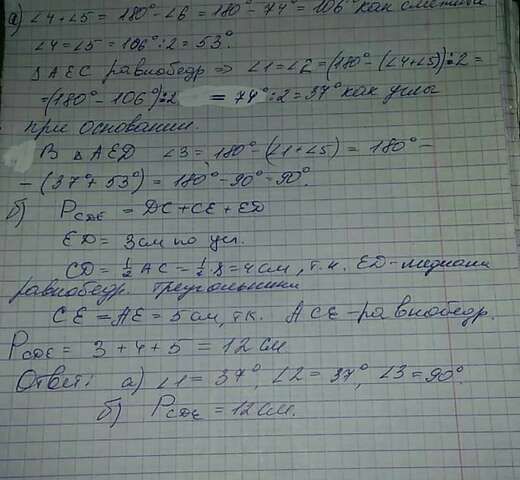 а) ∠4+∠5 = 180° - ∠6 = 180° - 74° = 106° как смежный
∠4=∠5 = 106° : 2 = 53°.
Δ АЕС равнобедр ⇒ ∠1=∠2 = (180° - (∠4+∠5)) : 2 =
= (180° - 106°) : 2 = 74° : 2 = 37° как углы
при основании.
В Δ AED ∠3 = 180° - (∠1+∠5) = 180° -
- (37° + 53°) = 180° - 90° = 90°.
б) PCDE = DC + CE + ED
ED = 3 см по усл.
CD = 1/2 AC = 1/2 · 8 = 4 см, т.к. ED - медиана
равнобедр. треугольника
CE = AE = 5 см, т.к. ACE - равнобедр.
PCDE = 3 + 4 + 5 = 12 см
Ответ: а) ∠1 = 37°, ∠2 = 37°, ∠3 = 90°.
б) PCDE = 12 см.